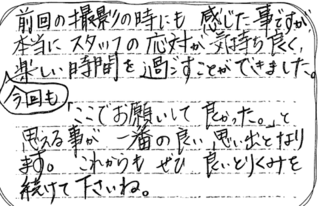 前回の撮影の時にも 感じた事ですが、
本当に スタッフの応対が 気持ち良く、
楽しい時間を 過ごすことができました。
今回も
「ここでお願いして 良かった。」と
思える事が 一番の良い 思い出となり
ます。 これからも ぜひ 良いとりくみを
続けて 下さいね。